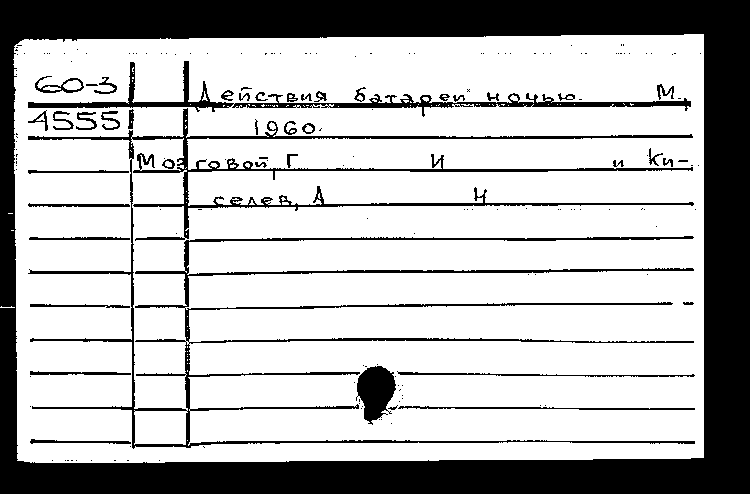 60-3 Действия батареи ночью. М.,
4555 1960.
Мозговой, Г И и Ки-
селев, А Н